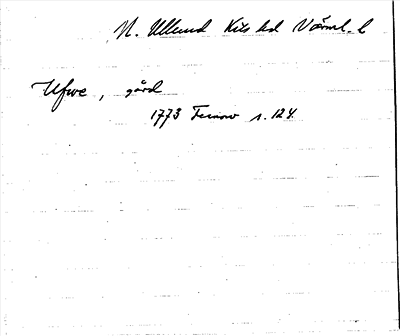 N. Ullerud Kils hd Värml. l
Ufwe, gård
1773 Fernow s. 124.